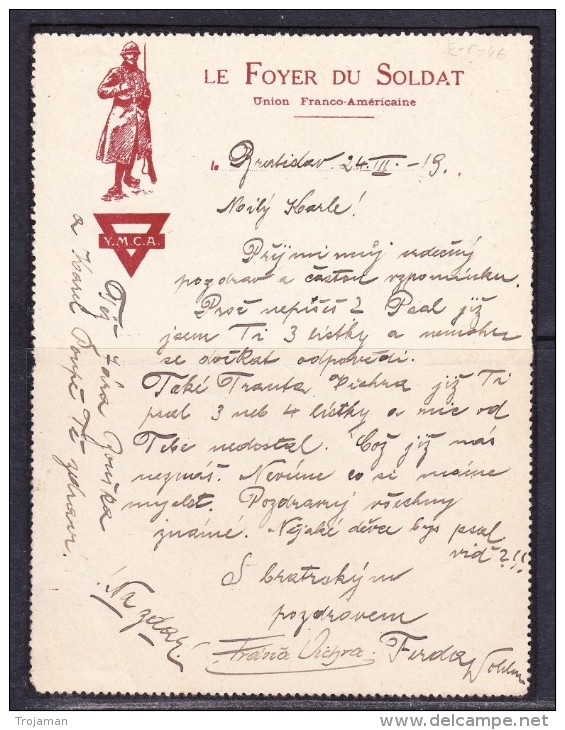 E-5-46
LE FOYER DU SOLDAT
Union Franco-Américaine
le Bratislav. 24. III. - 19.
Milý Karle!
Y.M.C.A.
Přijmi můj srdečný
pozdrav a častou vzpomínku.
Proč nepíšeš? Psal již
jsem Ti 3 lístky a nemohu
se dočkat odpovědi.
Také Franta Vichra již Ti
psal 3 neb 4 lístky a nic od
Tebe nedostal. Což již nás
neznáš. Nevíme co si máme
myslet. Pozdravuj všechny
známé. Nějaké děvče bys psal
viď?!!
S bratrským
pozdravem
Fráňa Vichra. Ferda
Též Jára
a Karel Tě zdraví!
Na zdar!
Trojaman
delcampe.net